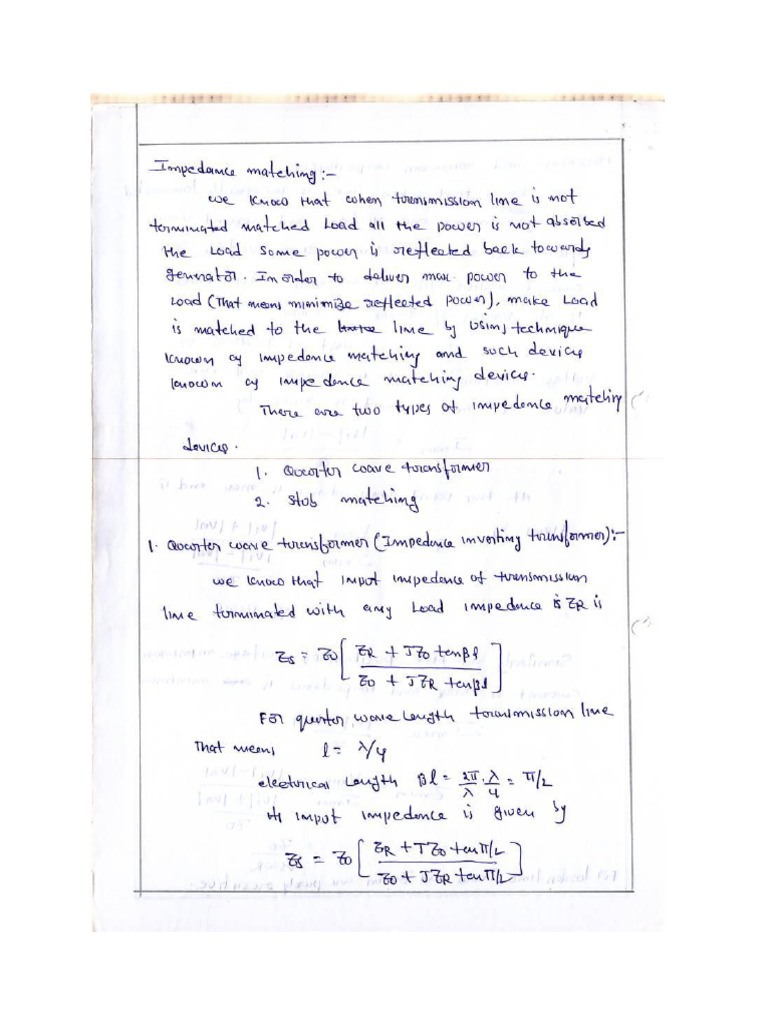 Impedance matching:-
we know that when transmission line is not
terminated matched Load all the power is not absorbed
the Load some power is reflected back towards
generator. In order to deliver max. power to the
Load (That means minimize reflected power), make Load
is matched to the line by using technique
known as impedance matching and such devices
known as impedance matching devices.
There are two types of impedance matching
devices.
1. Quarter wave transformer
2. Stub matching
1. Quarter wave transformer (Impedance inverting transformer):-
we know that input impedance of transmission
line terminated with any Load impedance is ZR is
Zs = Z0 [ (ZR + JZ0 tanβl) / (Z0 + JZR tanβl) ]
For quarter wave length transmission line
That means l = λ/4
electrical Length βl = 2π/λ . λ/4 = π/2
input impedance is given by
Zs = Z0 [ (ZR + JZ0 tan π/2) / (Z0 + JZR tan π/2) ]